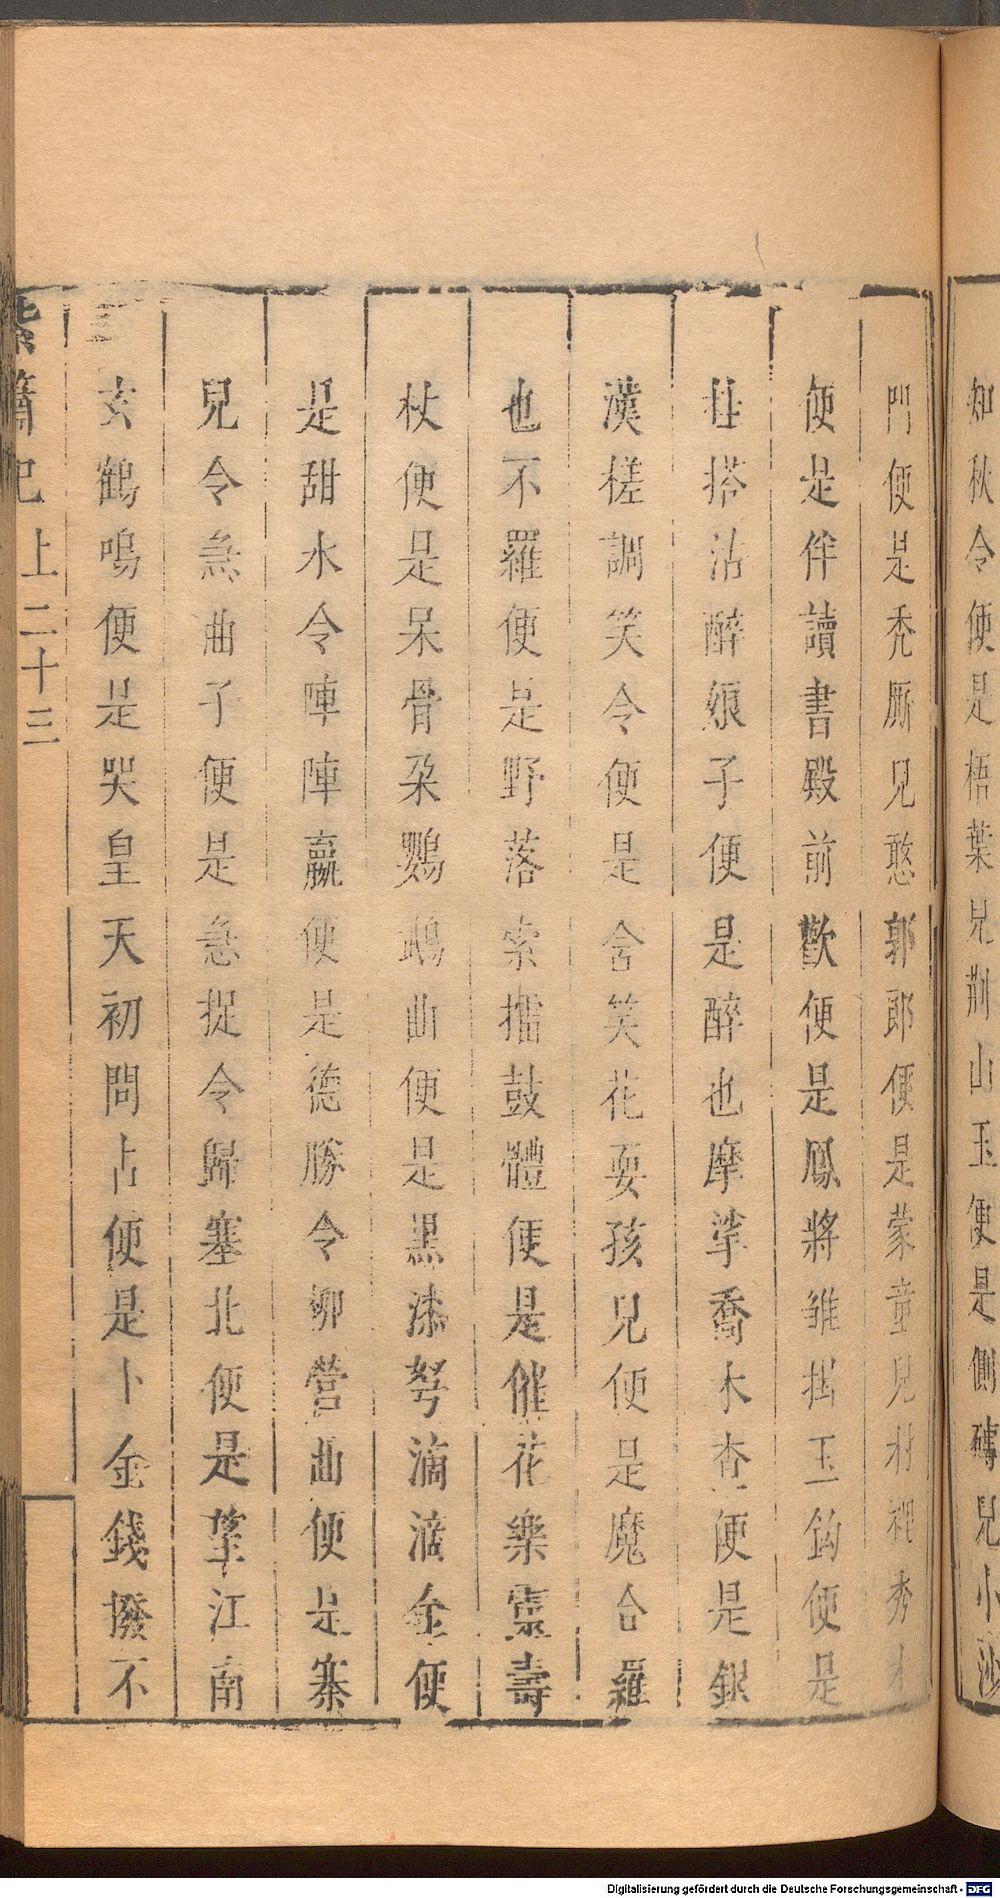 知秋令便是梧葉兒荊山玉便是側磚兒小沙
門便是禿厮兒憨郭郎便是蒙童兒村裡秀才
便是伴讀書殿前歡便是鳳將雛掛玉鈎便是
挂搭沽醉娘子便是醉也摩挲喬木杳便是銀
漢槎調笑令便是含笑花耍孩兒便是魔合羅
也不羅便是野落索擂鼓體便是催花樂靈壽
杖便是呆骨朶鸚鵡曲便是黒漆弩滴滴金便
是甜水令陣陣贏便是德勝令柳營曲便是寨
兒令急曲子便是急捉令歸塞北便是望江南
玄鶴鳴便是哭皇天初問占便是卜金錢撥不
紫簫記 上 二十三
Digitalisierung gefördert durch die Deutsche Forschungsgemeinschaft - DFG